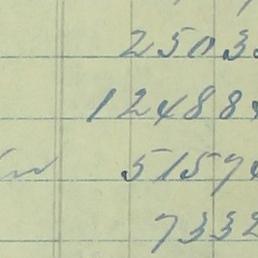 2503
12488
5157
7332